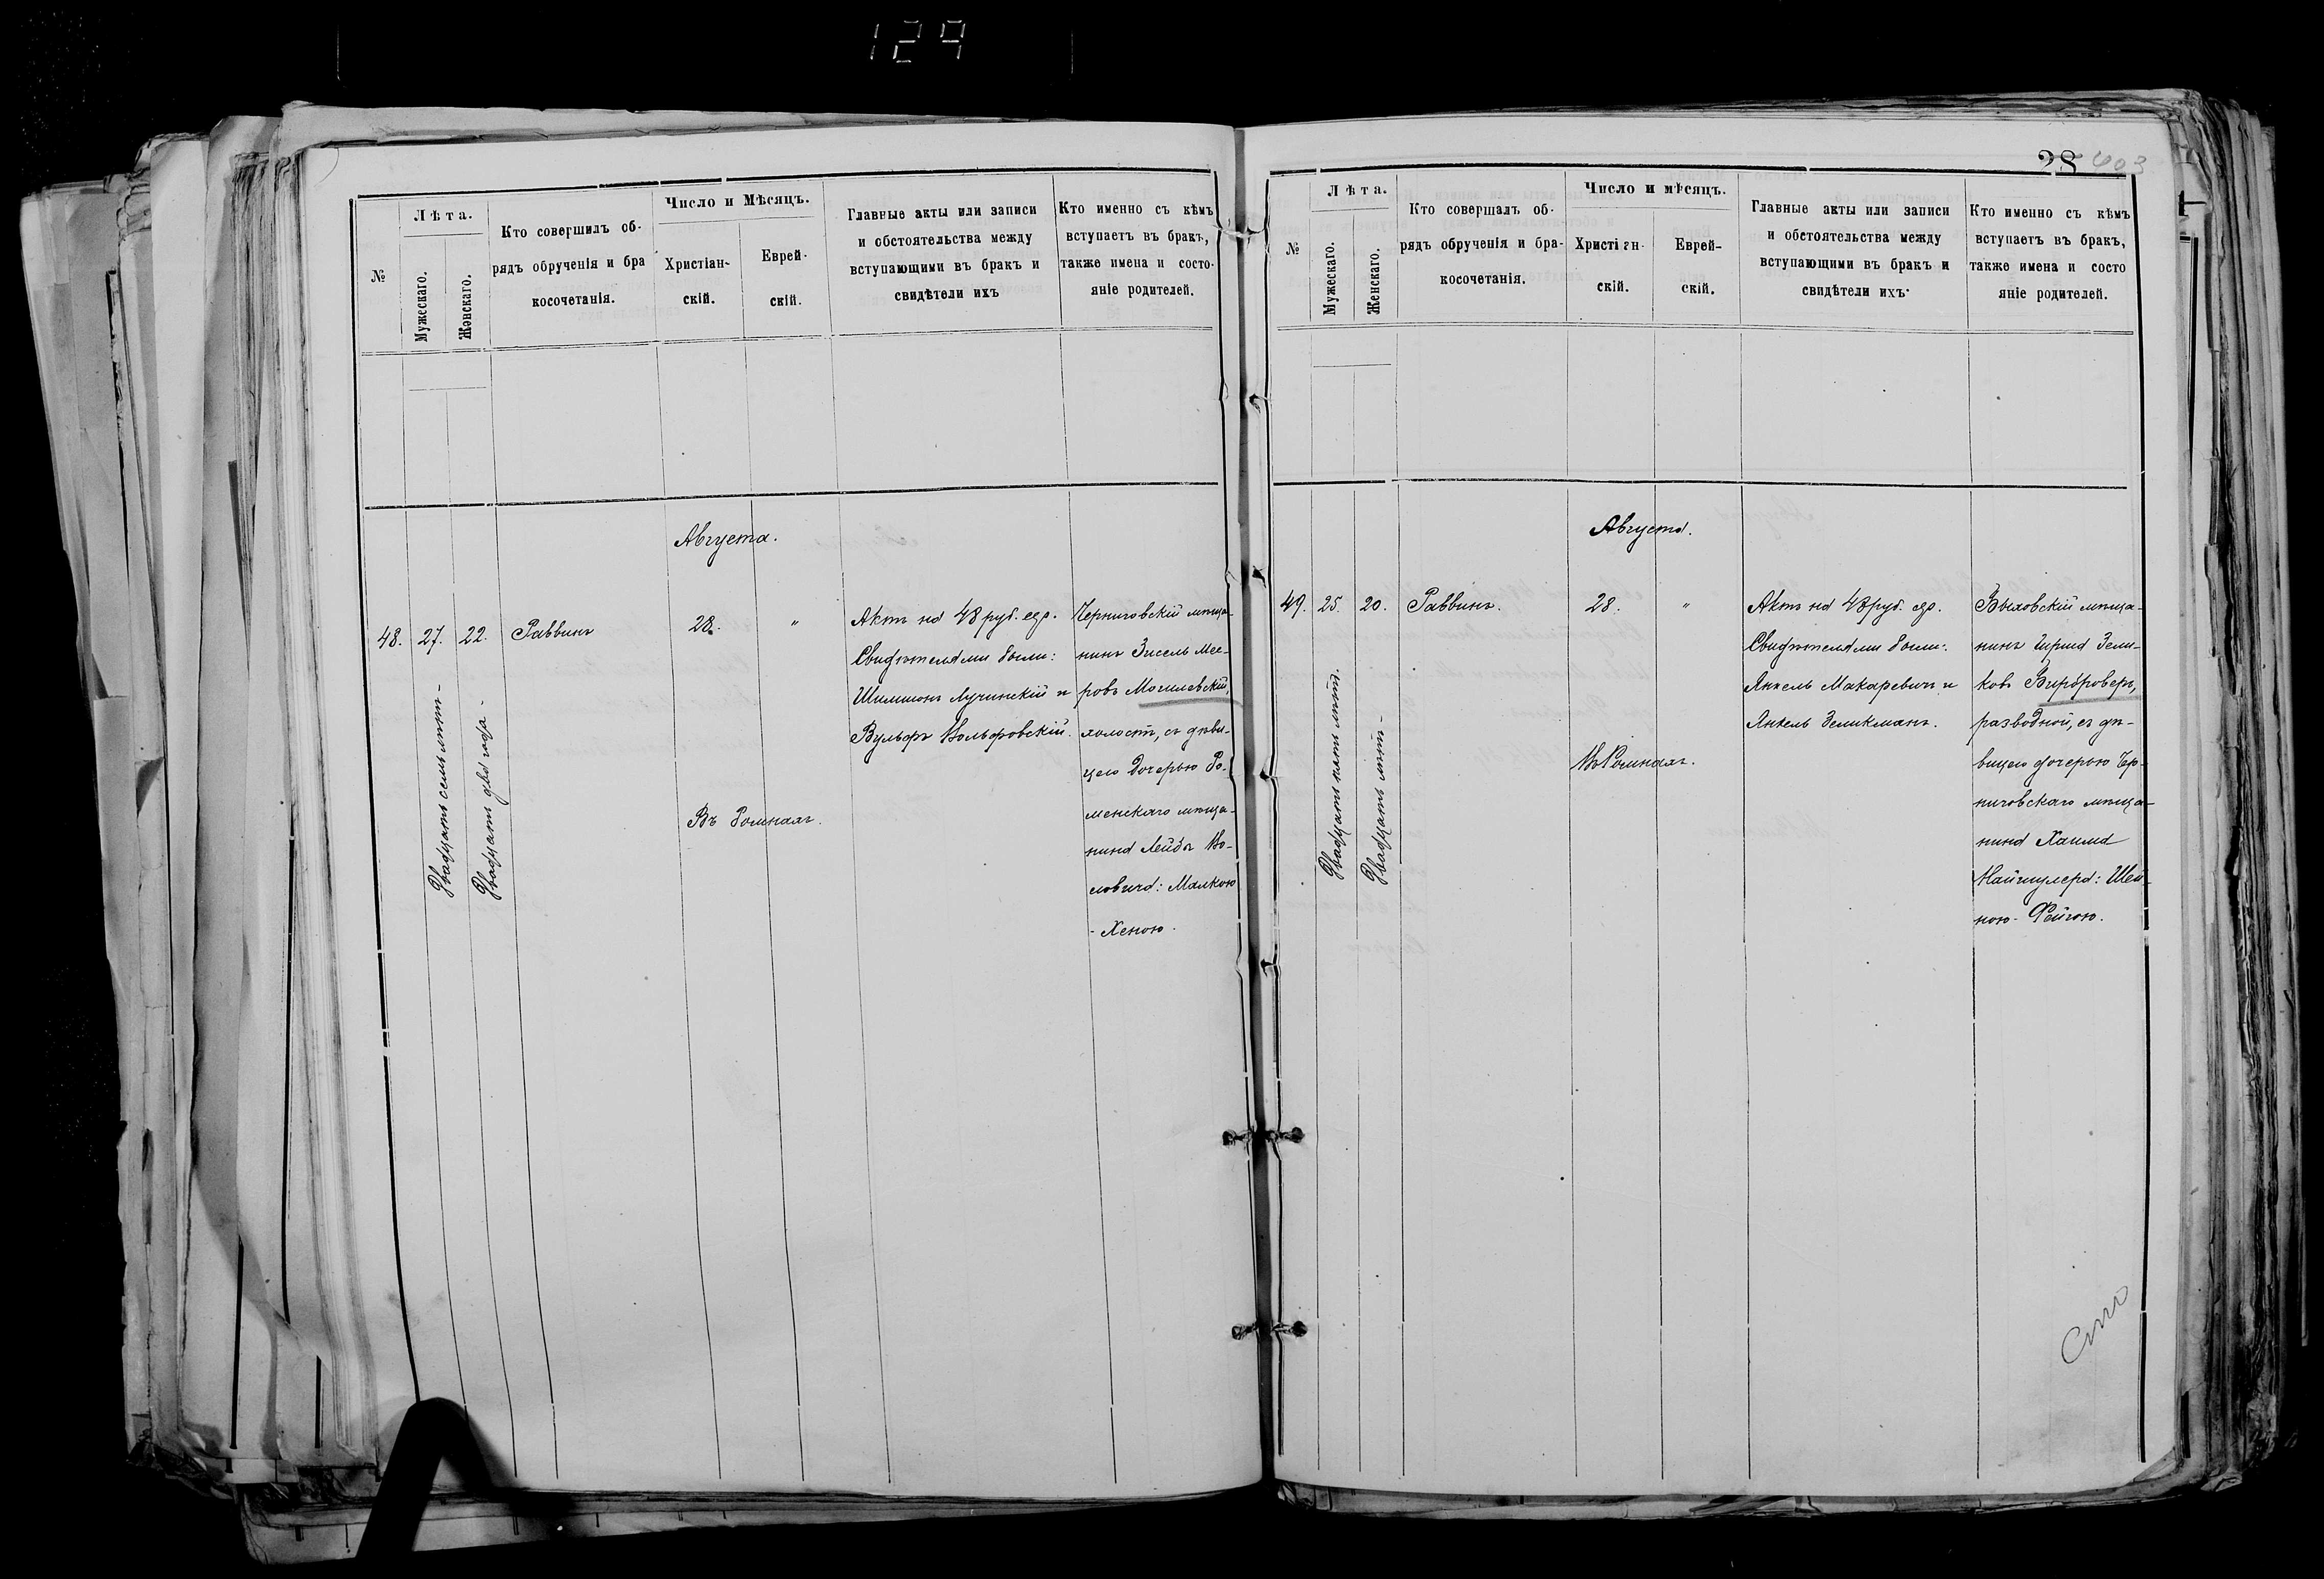 129
№
Лѣта.
Мужескаго.
Женскаго.
Кто совершилъ об-
рядъ обрученія и бра
косочетанія.
Число и Мѣсяцъ.
Христіан-
скій.
Еврей-
скій.
Главные акты или записи
и обстоятельства между
вступающими въ бракъ и
свидѣтели ихъ
Кто именно съ кѣмъ
вступаетъ въ бракъ,
также имена и состо-
яніе родителей.
Августа.
48.
27.
Двадцать семь лѣтъ-
22.
Двадцать два года-
Раввинъ
28.
"
Въ Ромнахъ.
Актъ на 48 руб. сер.
Свидѣтелями были:
Шимшонъ Лучинскій и
Вульфъ Вольфовскій.
Черниговскій мѣща-
нинъ Зисель Мее-
ровъ Могилевскій,
холостъ, съ дѣви-
цею дочерью Ро-
менскаго мѣща-
нина Лейбы Во-
ловича: Малкою
-Хеною.
28
603
№
Лѣта.
Мужескаго.
Женскаго.
Кто совершалъ об-
рядъ обрученія и бра-
косочетанія.
Число и мѣсяцъ.
Христіан-
скій.
Еврей-
скій.
Главные акты или записи
и обстоятельства между
вступающими въ бракъ и
свидѣтели ихъ
Кто именно съ кѣмъ
вступаетъ въ бракъ,
также имена и состо
яніе родителей.
Августа.
49.
25.
Двадцать пять лѣтъ.
20.
Двадцать лѣтъ-
Раввинъ.
28.
"
Въ Ромнахъ.
Актъ на 48 руб. сер.
Свидѣтелями были:
Янкель Макаревичъ и
Янкель Зеликманъ.
Быховскій мѣща-
нинъ Гирша Зели-
ковъ
разводной, съ дѣ-
вицею дочерью Чер-
ниговскаго мѣща-
нина Хаима
Найшулера: Шей-
ною-Фейгою.